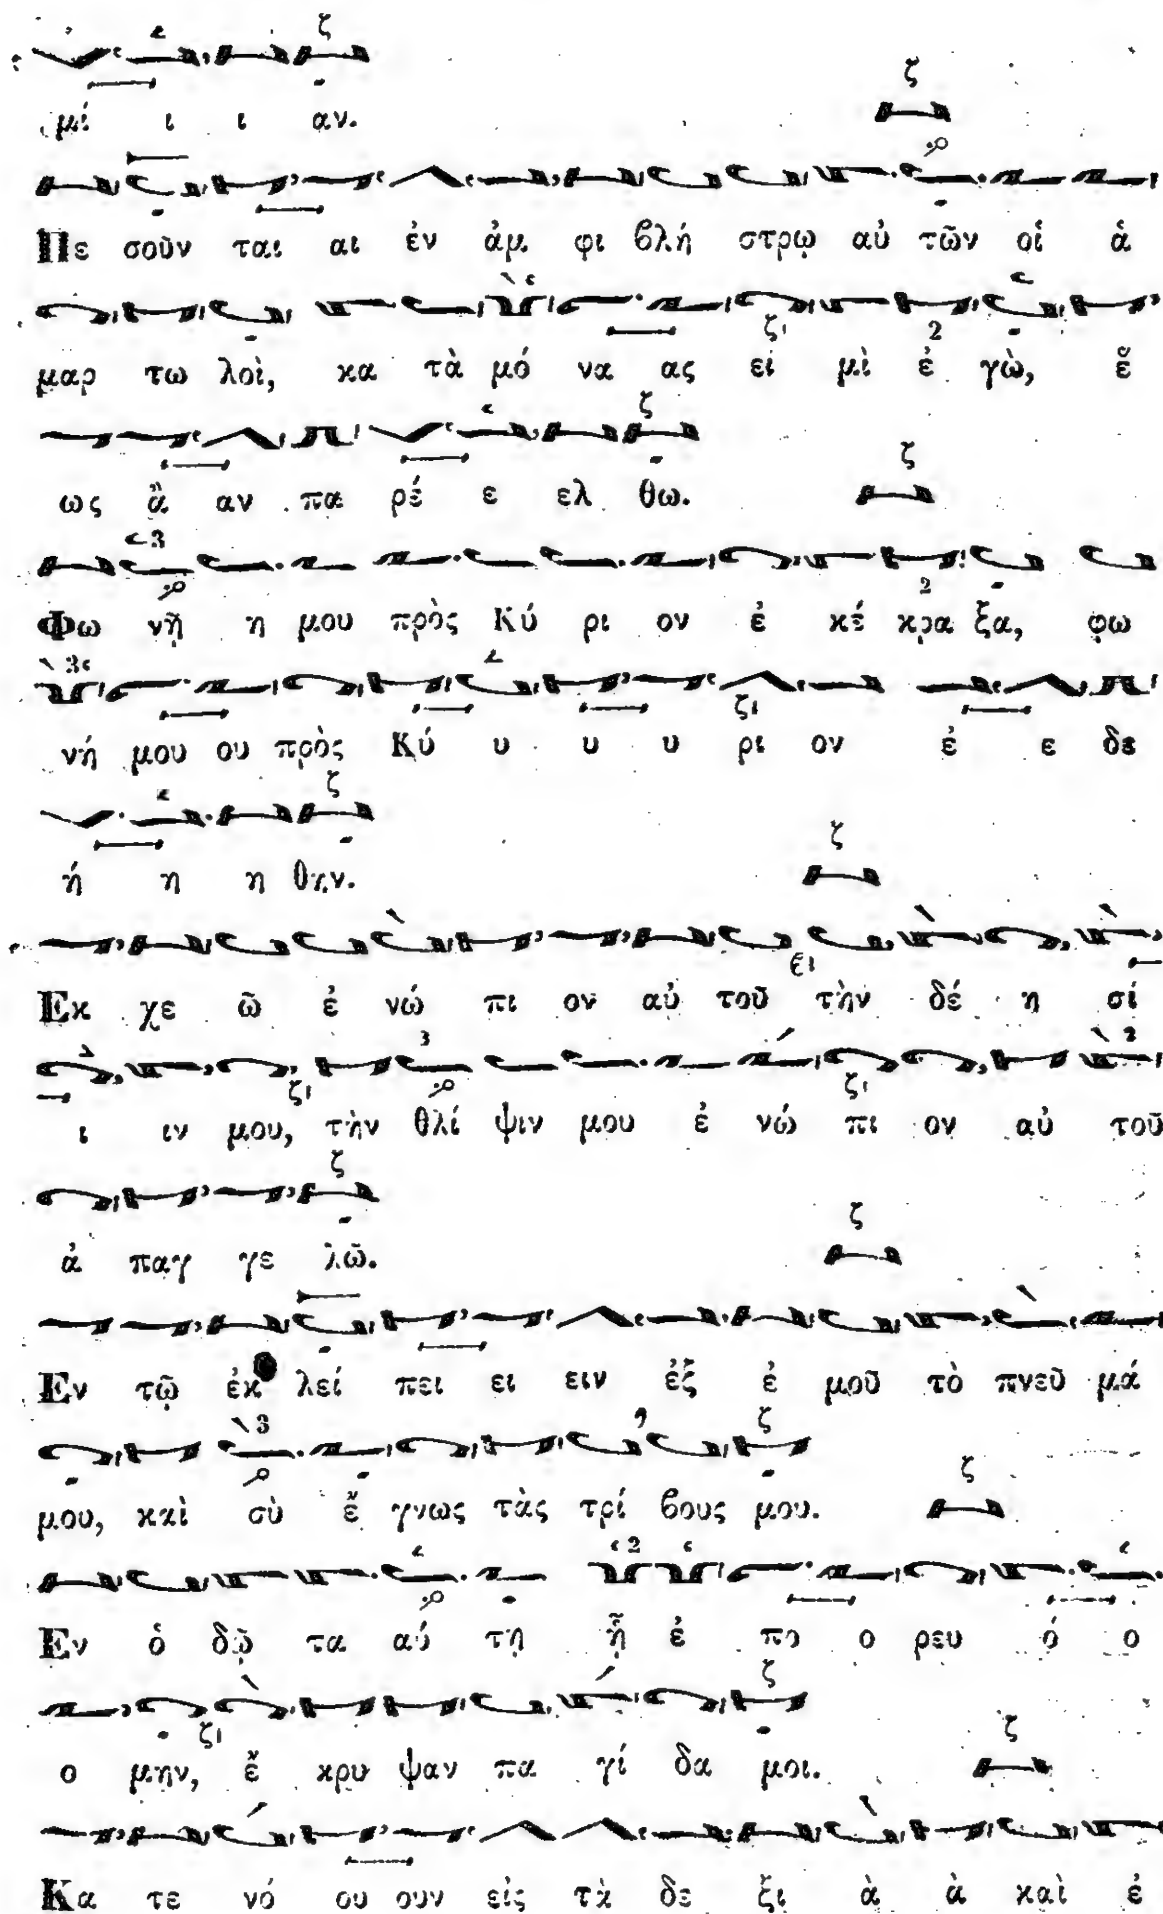 μί ι ι αν.
Πε σοῦν ται αι ἐν ἀμ φι βλή στρῳ αὐ τῶν οἱ ἁ
μαρ τω λοὶ, κα τὰ μό να ας εἰ μὶ ἐ γὼ, ἕ
ως ἂ αν πα ρέ ε ελ θω.
Φω νῇ η μου πρὸς Κύ ρι ον ἐ κέ κρα ξα, φω
νή μου ου πρὸς Κύ υ υ υ ρι ον ἐ ε δε
ή η η θην.
Εκ χε ῶ ἐ νώ πι ον αὐ τοῦ τὴν δέ η σί
ι ιν μου, τὴν θλί ψιν μου ἐ νώ πι ον αὐ τοῦ
ἀ παγ γε λῶ.
Εν τῷ ἐκ λεί πει ει ειν ἐξ ἐ μοῦ τὸ πνεῦ μά
μου, καὶ σὺ ἔ γνως τὰς τρί βους μου.
Εν ὁ δῷ τα αύ τῃ ᾗ ἐ πο ο ρευ ό ο
ο μην, ἔ κρυ ψαν πα γί δα μοι.
Κα τε νό ου ουν εἰς τὰ δε ξι ὰ ὰ καὶ ἐ